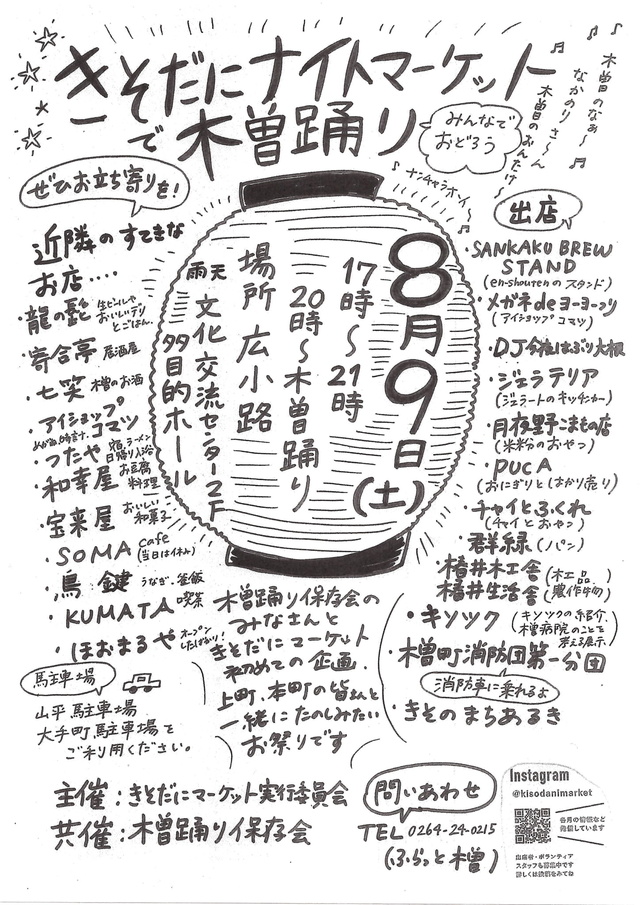 きそだにナイトマーケット
で木曽踊り
みんなで
おどろう
木曽のなぁ〜
なかのりさ〜ん
木曽のおんたけ〜
ナンチャラホーイ〜
ぜひお立ち寄りを!
近隣のすてきな
お店‥‥
・龍の髭 生ビールや おいしいデリ とごはん
・寄合亭 居酒屋
・七笑 木曽のお酒
・アイショップ コマツ
・つたや 宿、ラーメン 日帰り入浴
・和幸屋 お豆腐 料理
・宝来屋 おいしい 和菓子
・SOMA cafe (当日は休み)
・鳥鍵 うなぎ、釜飯
・KUMATA 喫茶
・ほおまるや オープン したばかり!
8月9日(土)
17時〜21時
20時〜木曽踊り
場所 広小路
雨天 文化交流センター2F
多目的ホール
出店
・SANKAKU BREW
STAND
(en-shoutenのスタンド)
・メガネdeヨーヨーつり
(アイショップコマツ)
・ジェラテリア
(ジェラートのキッチンカー)
・月夜野こまもの店
(米粉のおやつ)
・PUCA
(おにぎりとはかり売り)
・チャイとふくれ
(チャイとおやつ)
・群緑(パン)
・椿井木工舎(木工品)
椿井生活舎(農作物)
・キソツク(キソツクの紹介、
木曽病院のことを
考える展示)
・木曽町消防団第一分団
消防車に乗れるよ
・きそのまちあるき
木曽踊り保存会の
みなさんと
きそだにマーケット
初めての企画。
上町、本町の皆さんと
一緒にたのしみたい
お祭りです
駐車場
山平駐車場
大手町駐車場を
ご利用ください。
主催:きそだにマーケット実行委員会
共催:木曽踊り保存会
問いあわせ
TEL 0264-24-0215
(ふらっと木曽)
Instagram
@kisodanimarket
各月の情報など
発信しています
出店者・ボランティア
スタッフも募集中です
詳しくは投稿をみてね